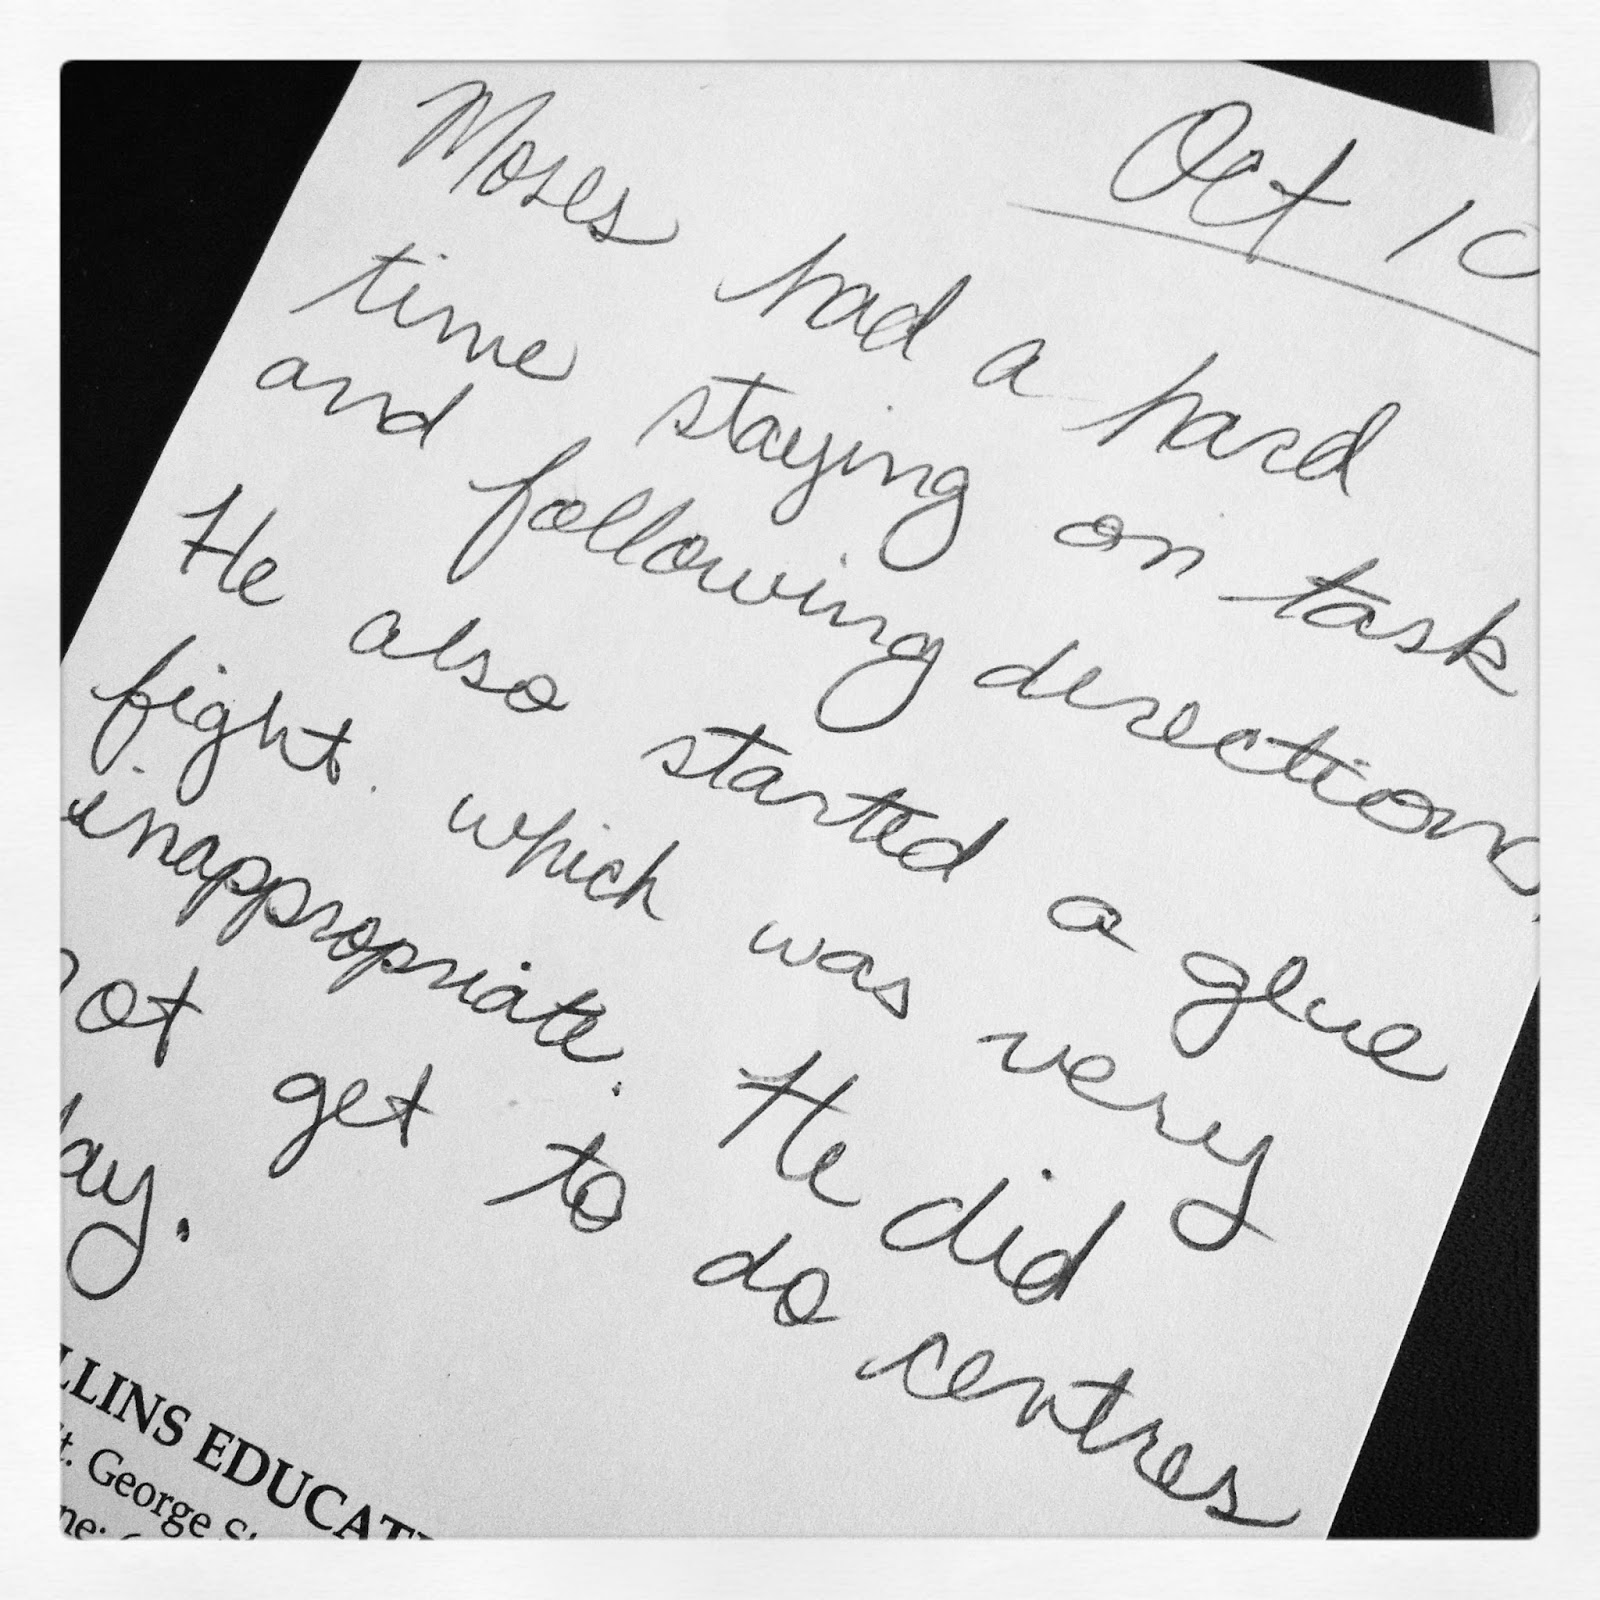 Oct 10
Moses had a hard
time staying on task
and following directions.
He also started a glue
fight. which was very
inappropriate. He did
not get to do centres
day.
LLINS EDUCAT
t. George St
ne: